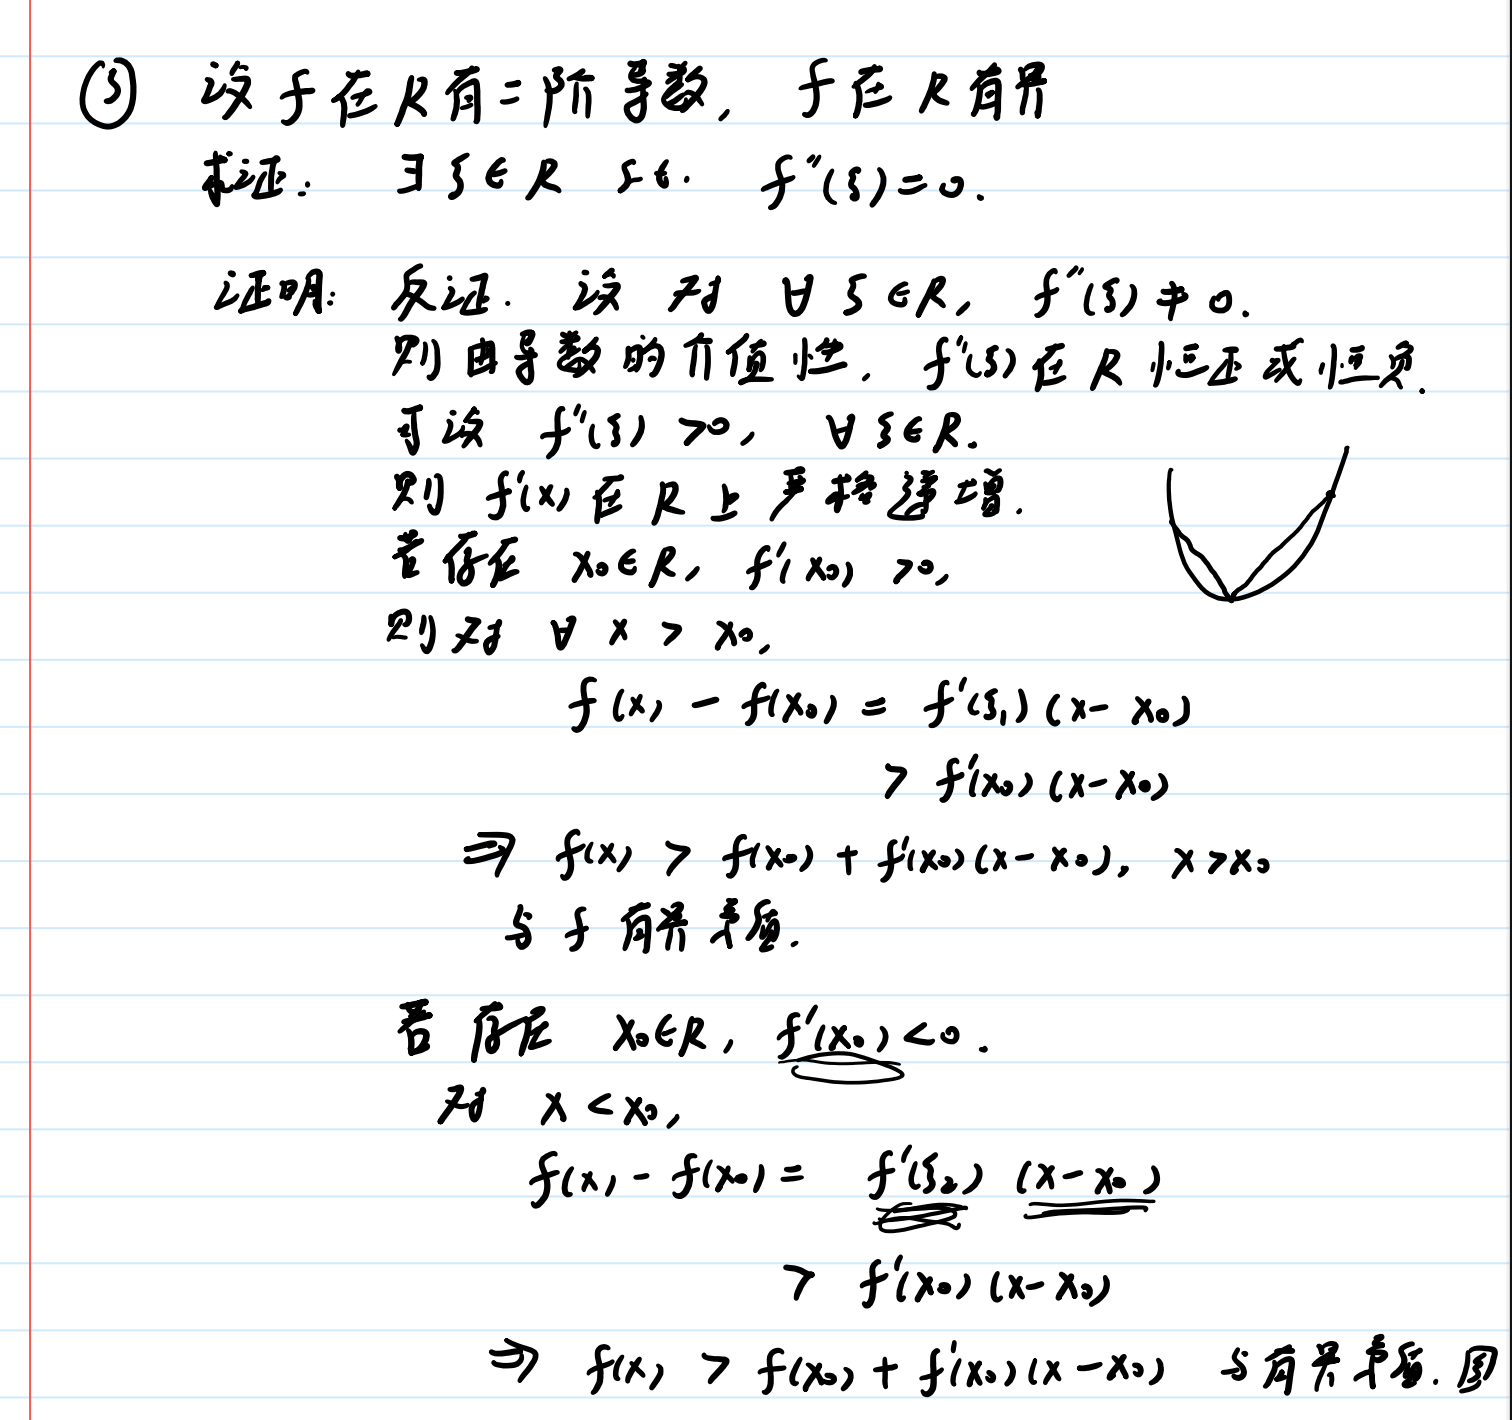 ③ 设 f 在 R 有二阶导数, f 在 R 有界
求证: ∃ξ∈R s.t. f''(ξ)=0.
证明: 反证. 设 对 ∀ ξ∈R, f''(ξ)≠0.
则由导数的介值性, f''(ξ)在 R 恒正或恒负.
可设 f''(ξ) >0, ∀ξ∈R.
则 f'(x) 在 R 上 严格递增.
若存在 x₀∈R, f'(x₀) >0,
则对 ∀ x > x₀,
f(x) - f(x₀) = f'(ξ₁)(x-x₀)
> f'(x₀)(x-x₀)
⇒ f(x) > f(x₀) + f'(x₀)(x-x₀), x>x₀
与 f 有界矛盾.
若存在 x₀∈R, f'(x₀)<0.
对 x<x₀,
f(x) - f(x₀) = f'(ξ₂) (x-x₀)
> f'(x₀)(x-x₀)
⇒ f(x) > f(x₀) + f'(x₀)(x-x₀) 与有界矛盾.